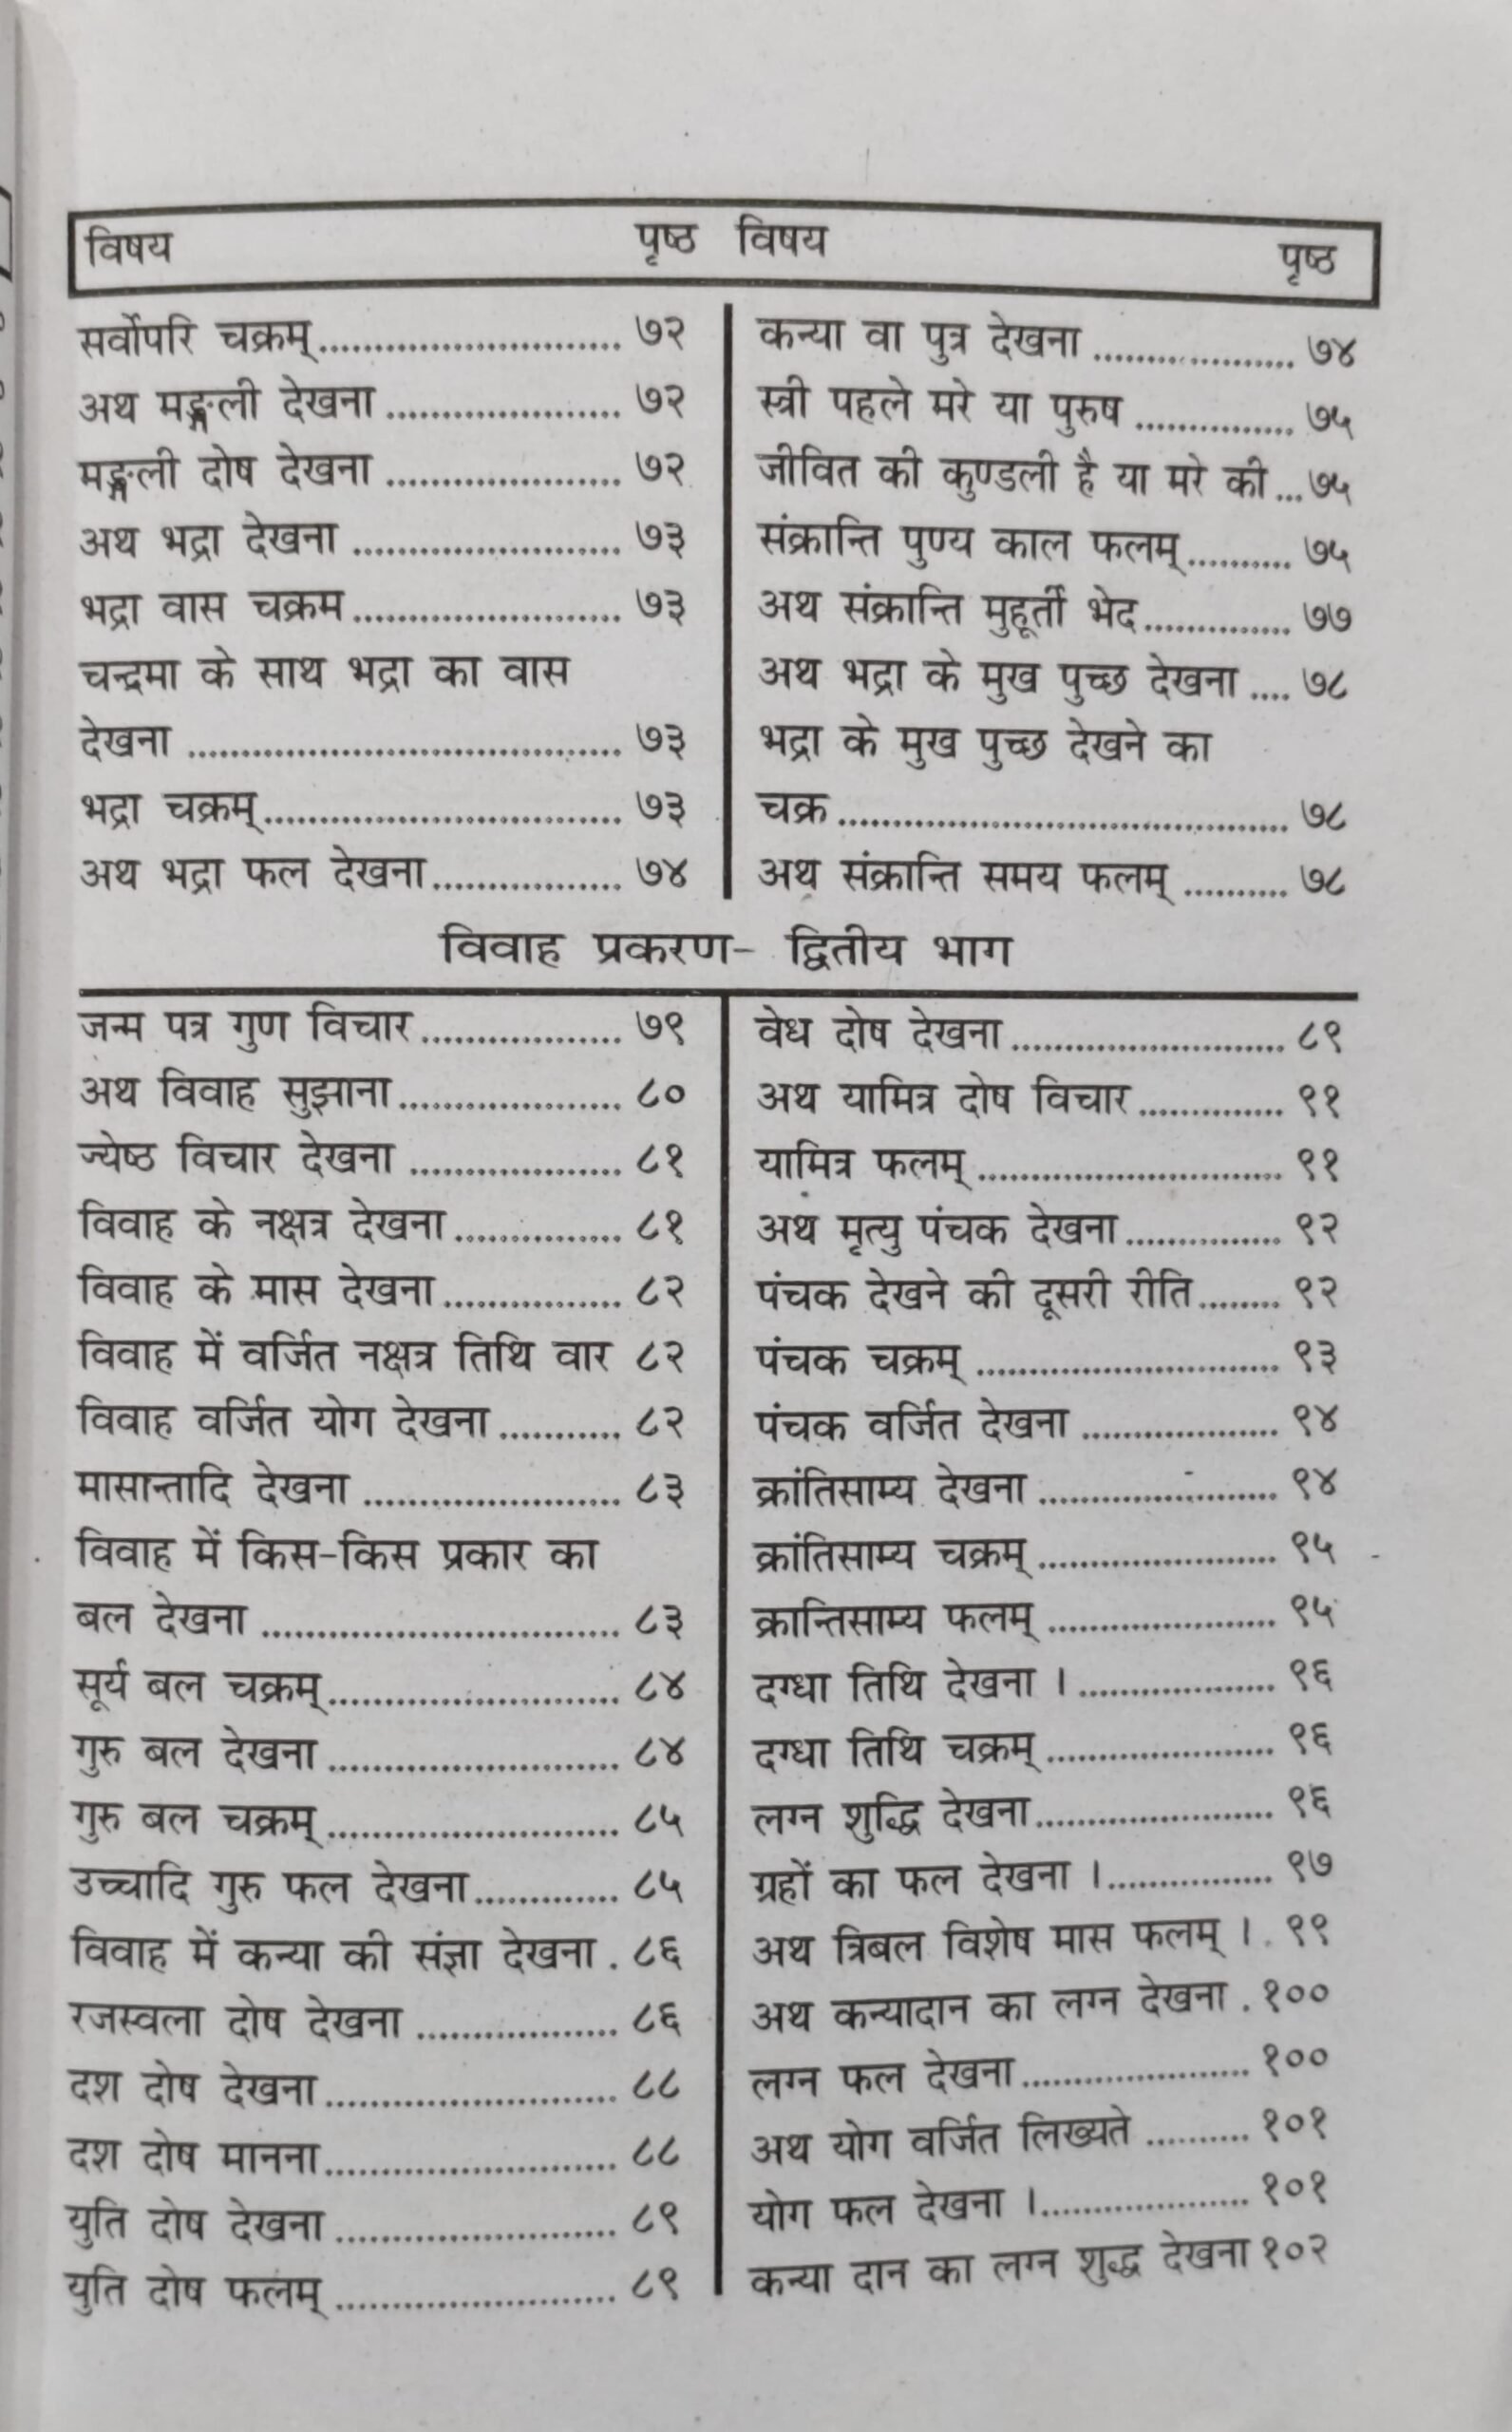 विषय पृष्ठ विषय पृष्ठ
सर्वोपरि चक्रम्........................... ७२
अथ मङ्गली देखना ..................... ७२
मङ्गली दोष देखना ..................... ७२
अथ भद्रा देखना ........................ ७३
भद्रा वास चक्रम........................ ७३
चन्द्रमा के साथ भद्रा का वास
देखना ....................................... ७३
भद्रा चक्रम्................................ ७३
अथ भद्रा फल देखना................. ७४
कन्या वा पुत्र देखना .................. ७४
स्त्री पहले मरे या पुरुष .............. ७५
जीवित की कुण्डली है या मरे की ...७५
संक्रान्ति पुण्य काल फलम्.......... ७५
अथ संक्रान्ति मुहूर्ती भेद............. ७७
अथ भद्रा के मुख पुच्छ देखना .... ७८
भद्रा के मुख पुच्छ देखने का
चक्र ......................................... ७८
अथ संक्रान्ति समय फलम् .......... ७८
विवाह प्रकरण- द्वितीय भाग
जन्म पत्र गुण विचार.................. ७९
अथ विवाह सुझाना.................... ८०
ज्येष्ठ विचार देखना ................... ८१
विवाह के नक्षत्र देखना............... ८१
विवाह के मास देखना................ ८२
विवाह में वर्जित नक्षत्र तिथि वार ८२
विवाह वर्जित योग देखना ........... ८२
मासान्तादि देखना ....................... ८३
विवाह में किस-किस प्रकार का
बल देखना ................................ ८३
सूर्य बल चक्रम्.......................... ८४
गुरु बल देखना .......................... ८४
गुरु बल चक्रम्.......................... ८५
उच्चादि गुरु फल देखना............. ८५
विवाह में कन्या की संज्ञा देखना . ८६
रजस्वला दोष देखना .................. ८६
दश दोष देखना.......................... ८८
दश दोष मानना.......................... ८८
युति दोष देखना ......................... ८९
युति दोष फलम् ......................... ८९
वेध दोष देखना ......................... ८९
अथ यामित्र दोष विचार............. ९१
यामित्र फलम् ........................... ९१
अथ मृत्यु पंचक देखना.............. ९२
पंचक देखने की दूसरी रीति........ ९२
पंचक चक्रम् ............................ ९३
पंचक वर्जित देखना .................. ९४
क्रांतिसाम्य देखना ...................... ९४
क्रांतिसाम्य चक्रम् ...................... ९५
क्रान्तिसाम्य फलम् ..................... ९५
दग्धा तिथि देखना ।.................. ९६
दग्धा तिथि चक्रम् ..................... ९६
लग्न शुद्धि देखना...................... ९६
ग्रहों का फल देखना ।............... ९७
अथ त्रिबल विशेष मास फलम् ।. ९९
अथ कन्यादान का लग्न देखना . १००
लग्न फल देखना ..................... १००
अथ योग वर्जित लिख्यते .......... १०१
योग फल देखना ।.................... १०१
कन्या दान का लग्न शुद्ध देखना १०२